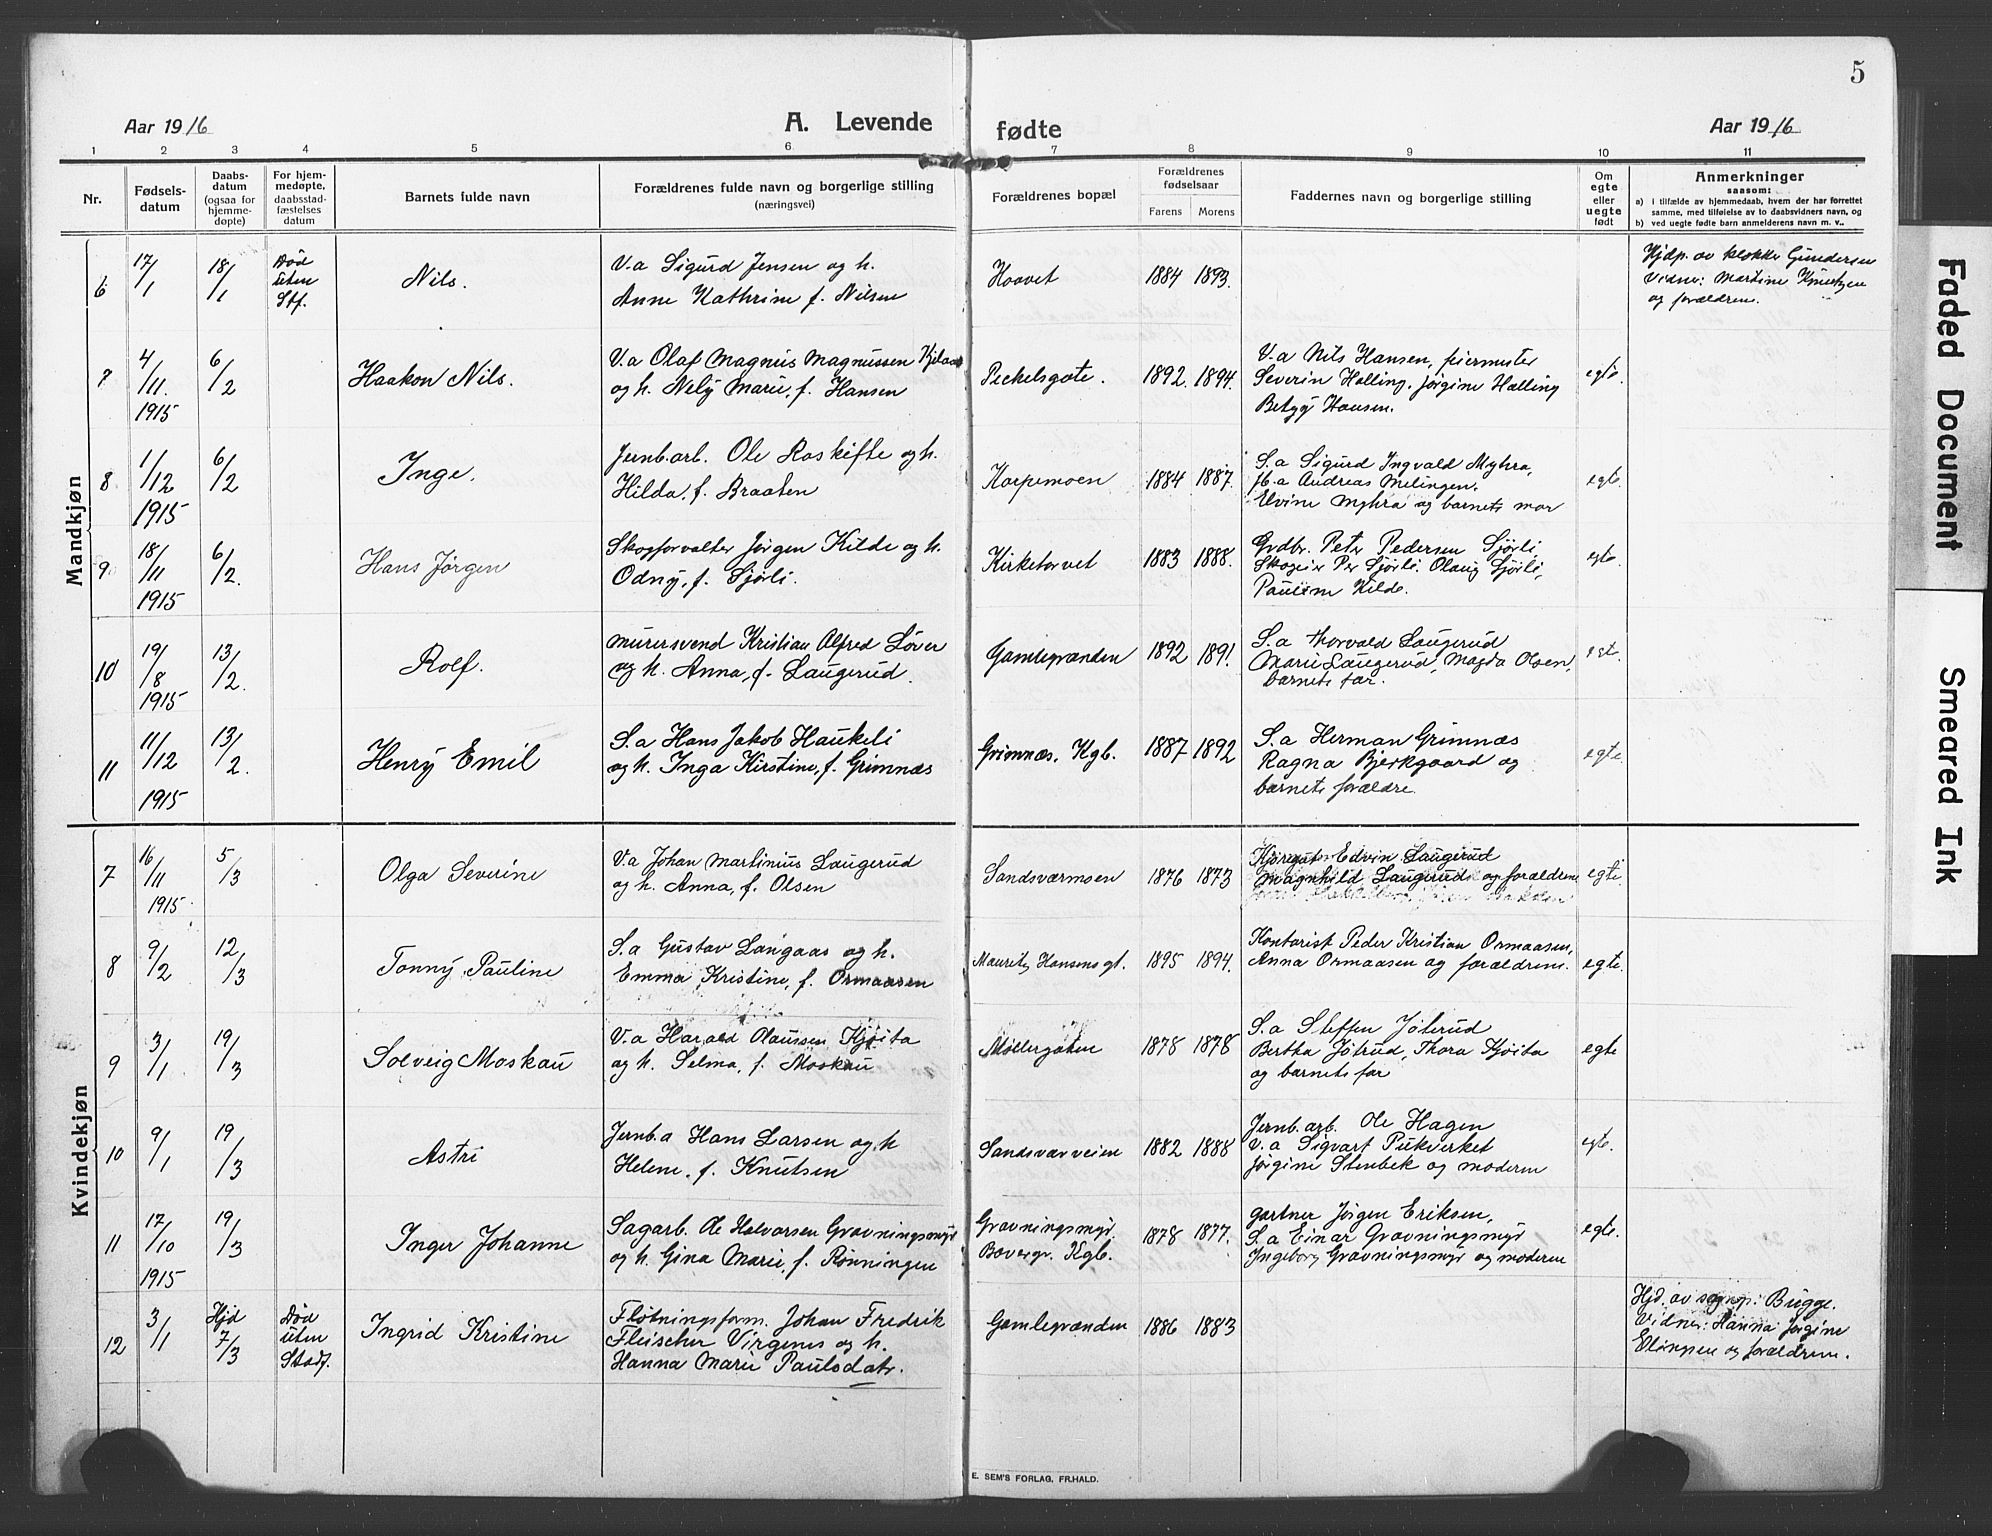 5
Aar 1916
A. Levende
fødte
Aar 1916
1 2 3 4 5 6 7 8 9 10 11
Nr.
Fødsels-
datum
Daabs-
datum
(ogsaa for
hjemme-
døpte)
For hjem-
medøpte,
daabsstad-
fæstelses
datum
Barnets fulde navn
Forældrenes fulde navn og borgerlige stilling
(næringsvei)
Forældrenes bopæl
Forældrenes
fødselsaar
Farens Morens
Faddernes navn og borgerlige stilling
Om
egte
eller
uegte
født
Anmerkninger
saasom:
a) i tilfælde av hjemmedaab, hvem der har forrettet
samme, med tilføielse av to daabsvidners navn, og
b) ved uegte fødte barn anmelderens navn m. v..
Mandkjøn
6
17/1
18/1
Død
uten
Stf.
Nils.
V.a Sigurd Jensen og h.
Anne Kathrine f. Nilsen
Haavet
1884 1893.
Hjdp. av klokker Gundersen
Vidner: Martine Knutzen
og forældrene.
7
4/11.
1915
6/2
Haakon Nils.
V.a Olaf Magnus Magnussen
og h. Nely Marie, f. Hansen
Peckelsgate.
1892. 1894.
V.a Nils Hansen, feiermester
Severin Halling, Jørgine Halling
Betzy Hansen.
egte.
8
1/12
1915
6/2
Inge.
Jernb.arb. Ole Roskifte og h.
Hilda, f. Braaten
Korpemoen
1884 1887.
S.a Sigurd Ingvald Myhra,
Jb.a Andreas Melingen,
Elvine Myhra og barnets mor
egte.
9
18/11
1915
6/2.
Hans Jørgen
Skogforvalter Jørgen Kilde og h.
Odny, f. Sjørli.
Kirketorvet
1883 1888.
Grdbr. Peter Pedersen Sjørli
Skogeier Per Sjørli. Olaug Sjørli,
Pauline Kilde.
egte.
10
19/8
1915
13/2.
Rolf.
Murersvend Kristian Alfred Løver
og h. Anna, f. Laugerud.
Gamlegrænden
1892 1891.
S.a Thorvald Laugerud
Marie Laugerud, Magda Olsen,
barnets far.
egte.
11
11/12
1915
13/2.
Henry Emil
S.a Hans Jakob Haukeli
og h. Inga Kirstine, f. Grimnæs
Grimnæs, Kgb.
1887 1892
S.a Herman Grimnæs
Ragna Bjerkgaard og
barnets forældre.
egte
Kvindekjøn
7
16/11
1915
5/3
Olga Severine
V.a Johan Martinius Laugerud
og h. Anna, f. Olsen
Sandsværmoen
1876 1873
Edvin Laugerud
Magnhild Laugerud og forældrene
egte.
8
9/2
12/3
Tonny Pauline
S.a Gustav Langaas og h.
Emma Kristine, f. Ormaasen
Mauritz Hansens gt.
1895 1894.
Kontorist Peder Kristian Ormaasen,
Anna Ormaasen og forældrene.
egte.
9
3/1
19/3
Solveig Moskau
V.a Harald Olaussen Kjøita
og h. Selma, f. Moskau
Møllergaten
1878 1878
S.a Steffen Jøterud
Bertha Jøtrud, Thora Kjøita
og barnets far
egte
10
9/1
19/3
Astri
Jernb.a Hans Larsen og h
Helene, f. Knutsen
Sandsværveien
1882 1888
Jernb.arb. Ole Hagen
V.a Sigvart Pukverket
Jørgine Stenbek og moderen
egte.
11
17/10
1915
19/3
Inger Johanne
Sagarb. Ole Halvorsen Gravningsmyr
og h. Gina Marie, f. Rønningen
Gravningsmyr,
Bævergr. Kgb.
1878 1877.
Gartner Jørgen Eriksen,
S.a Einar Gravningsmyr
Ingeborg Gravningsmyr og moderen
egte.
12
3/1
Hjd
7/3
Død
uten
Stadf.
Ingrid Kristine
Fløtningsform. Johan Fredrik
Fleischer Virgenes og h.
Hanna Marie Paulsdatr.
Gamlegrænden
1886 1883
Hjd. av sognep: Bugge.
Vidner: Hanna Jørgine
og forældrene.
E. SEM'S FORLAG, FR.HALD.
Faded Document
Smeared Ink